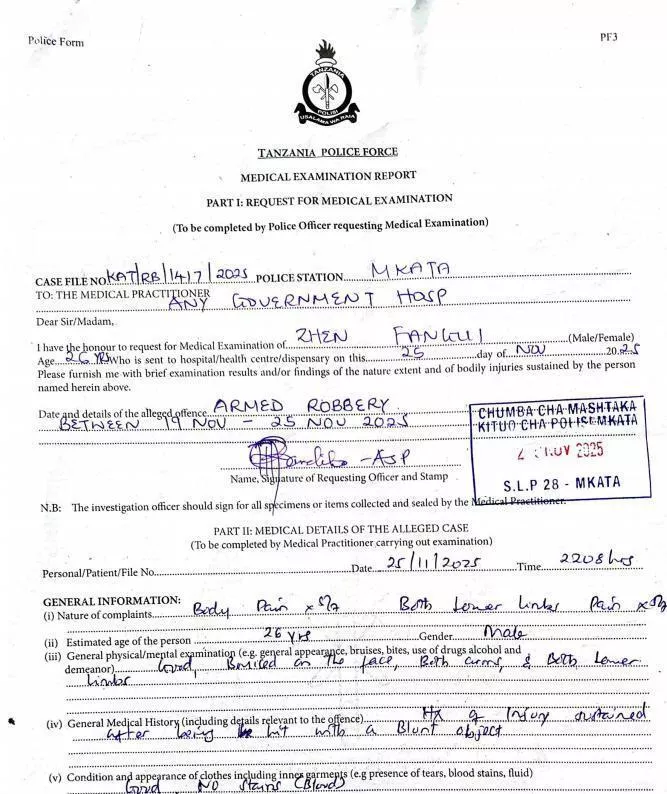 Police Form
PF3
TANZANIA
POLISI
USALAMA WA RAIA
TANZANIA POLICE FORCE
MEDICAL EXAMINATION REPORT
PART I: REQUEST FOR MEDICAL EXAMINATION
(To be completed by Police Officer requesting Medical Examination)
CASE FILE NO. KAT/RB/1417/2025 POLICE STATION MKATA
TO: THE MEDICAL PRACTITIONER
ANY GOVERNMENT HOSP
Dear Sir/Madam,
I have the honour to request for Medical Examination of ZHEN FANGUI (Male/Female)
Age 26 YRS Who is sent to hospital/health centre/dispensary on this 25 day of NOV 2025
Please furnish me with brief examination results and/or findings of the nature extent and of bodily injuries sustained by the person
named herein above.
Date and details of the alleged offence ARMED ROBBERY
BETWEEN 19 NOV - 25 NOV 2025
CHUMBA CHA MASHTAKA
KITUO CHA POLISI MKATA
NOV 2025
S.L.P 28 - MKATA
- ASP
Name, Signature of Requesting Officer and Stamp
N.B: The investigation officer should sign for all specimens or items collected and sealed by the Medical Practitioner.
PART II: MEDICAL DETAILS OF THE ALLEGED CASE
(To be completed by Medical Practitioner carrying out examination)
Personal/Patient/File No. Date 25/11/2025 Time 2208 hrs
GENERAL INFORMATION:
(i) Nature of complaints Body Pain x 5/7 Both Lower limbs Pain x 5/7
(ii) Estimated age of the person 26 yrs Gender Male
(iii) General physical/mental examination (e.g. general appearance, bruises, bites, use of drugs alcohol and
demeanor) Good, Bruised on the face, Both arms, & Both Lower
limbs
(iv) General Medical History (including details relevant to the offence) Hx of Injury sustained
after being hit with a Blunt object
(v) Condition and appearance of clothes including inner garments (e.g presence of tears, blood stains, fluid)
Good, NO stains (Blood)